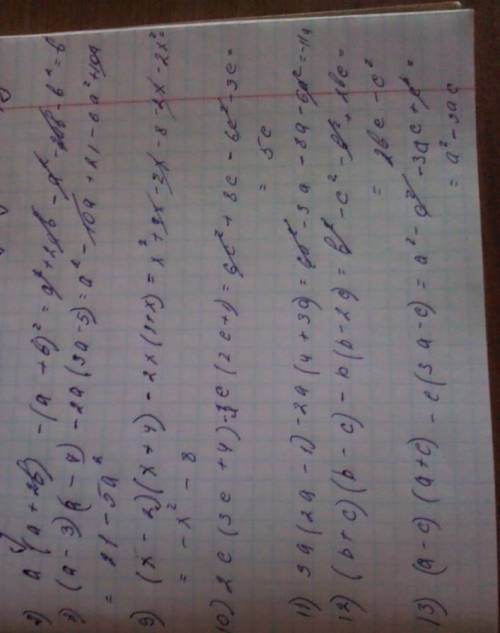 2) a(a+2b) -(a+b)² = a²+2ab-a²-2ab-b²=b
7) (a-3)(a-7) -2a(3a-5)=a²-10a+21-6a²+10a
= 21-5a²
9) (x-2)(x+4) -2x(1+x)= x²+4x-2x-8-2x-2x²
= -x²-8
10) 2c(3c+4)-3c(2c+1)=6c²+8c-6c²-3c=
= 5c
11) 3a(2a-1)-2a(4+3a)=6a²-3a-8a-6a²=-11a
12) (b+c)(b-c)-b(b-2c)=b²-c²-b²+2bc=
= 2bc-c²
13) (a-c)(a+c) -c(3a-c)=a²-c²-3ac+c²=
= a²-3ac